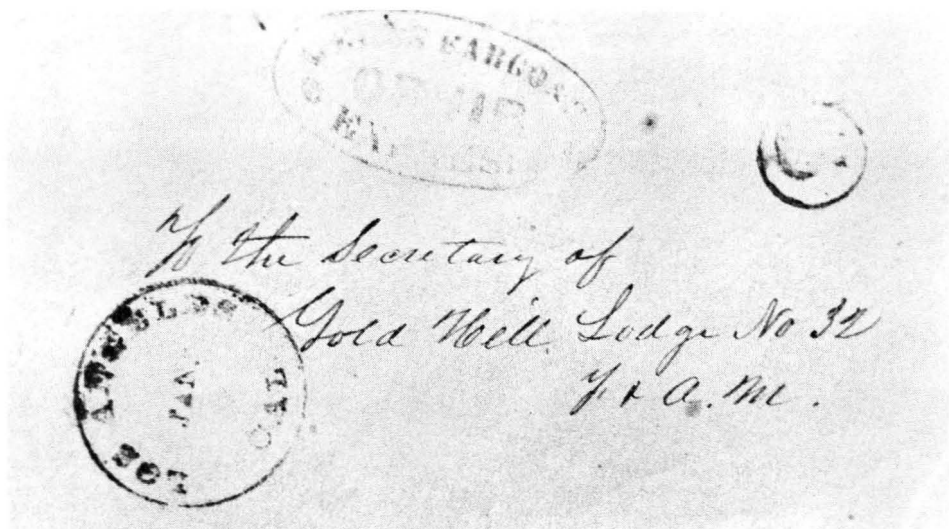 WELLS FARGO & CO
OPHIR
EXPRESS
To the Secretary of
Gold Hill Lodge No 32
F & A. M.
LOS ANGELES
JAN
CAL